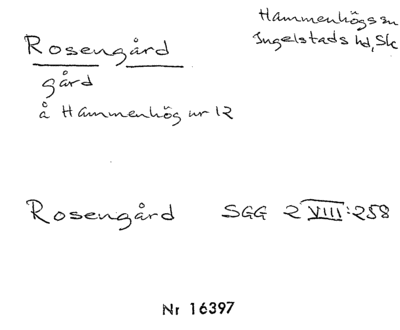 Rosengård
Hammenhögs sn
Ingelstads hd, Sk
gård
å Hammenhög nr 12
Rosengård SGG 2 VIII:258
Nr 16397